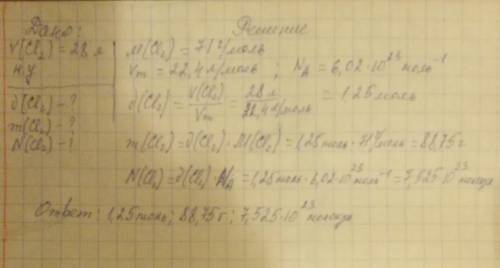 Дано: Решение
V(Cl₂) = 28 л
н.у.
∂(Cl₂) - ?
m(Cl₂) - ?
N(Cl₂) - ?
M(Cl₂) = 71 г/моль
Vm = 22,4 л/моль ; NA = 6,02 · 10²³ моль⁻¹
∂(Cl₂) = V(Cl₂)/Vm = 28 л/22,4 л/моль = 1,25 моль
m(Cl₂) = ∂(Cl₂) · M(Cl₂) = 1,25 моль · 71 г/моль = 88,75 г
N(Cl₂) = ∂(Cl₂) · NA = 1,25 моль · 6,02 · 10²³ моль⁻¹ = 7,525 · 10²³ молекул
Ответ: 1,25 моль; 88,75 г; 7,525 · 10²³ молекул